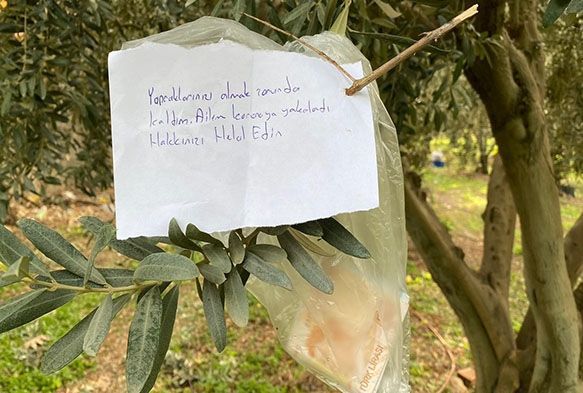 Yapraklarınızı almak zorunda
kaldım. Ailem koronaya yakaladı
Hakkınızı Helal Edin
TÜRK LİRASI